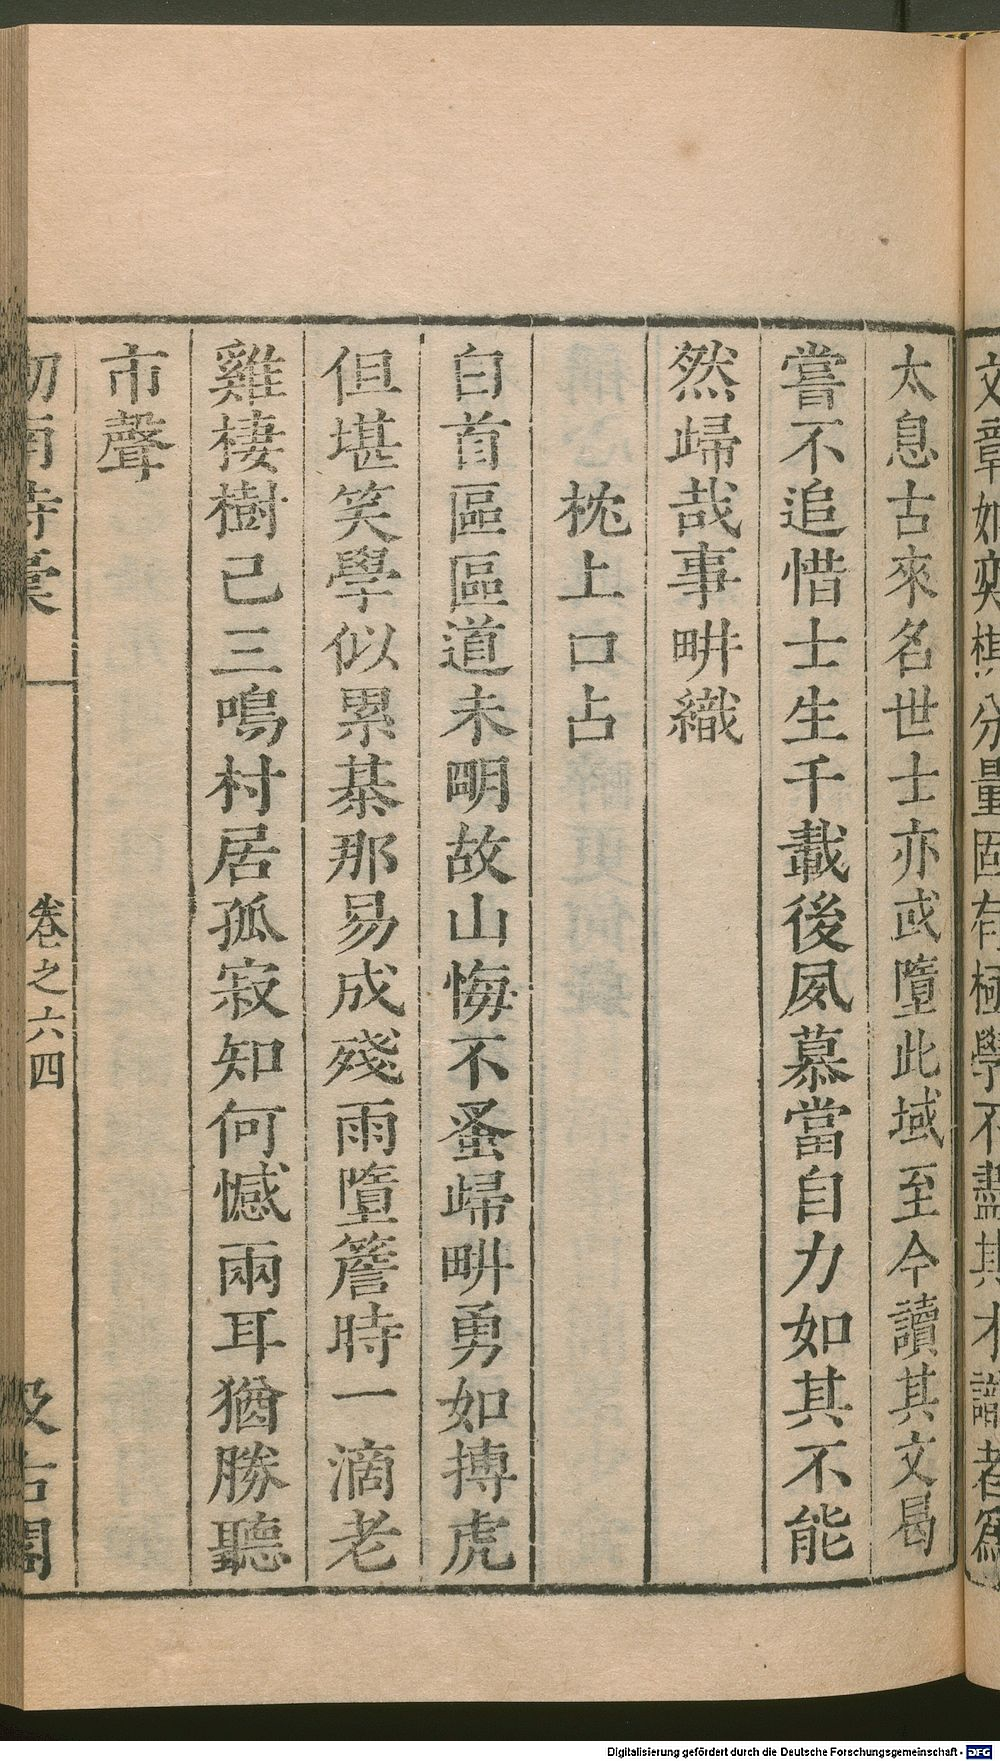 文章如奕棋分量固有極學不盡其才識者爲
太息古來名世士亦或墮此域至今讀其文曷
嘗不追惜士生千載後夙慕當自力如其不能
然歸哉事畊織
枕上口占
白首區區道未明故山悔不蚤歸畊勇如搏虎
但堪笑學似累棊那易成殘雨墮簷時一滴老
雞棲樹已三鳴村居孤寂知何憾兩耳猶勝聽
市聲
卷之六四
Digitalisierung gefördert durch die Deutsche Forschungsgemeinschaft - DFG